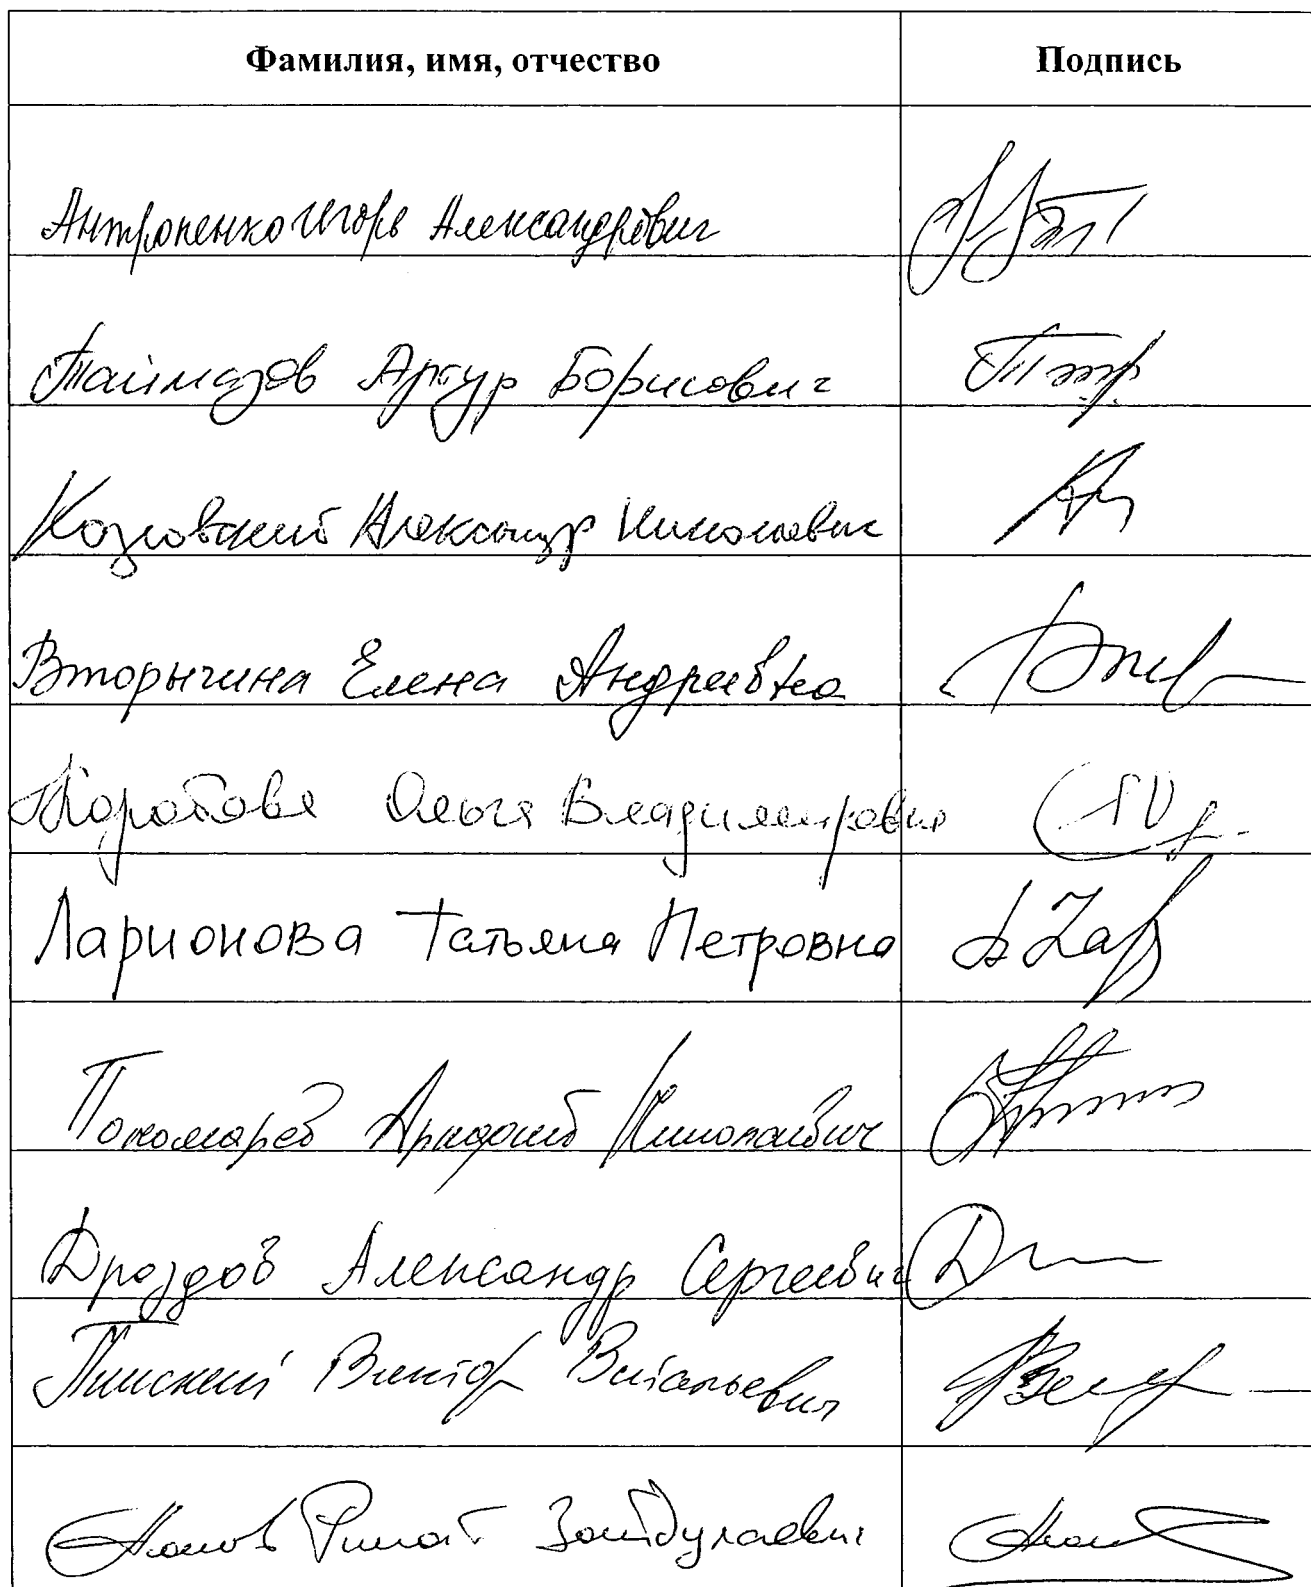 Фамилия, имя, отчество Подпись
Антропенко Игорь Александрович
Таймазов Артур Борисович
Козловский Александр Николаевич
Вторыгина Елена Андреевна
Коробова Ольга Владимировна
Ларионова Татьяна Петровна
Пономарёв Аркадий Николаевич
Дроздов Александр Сергеевич
Пинский Виктор Витальевич
Аюпов Ринат Зайдулаевич